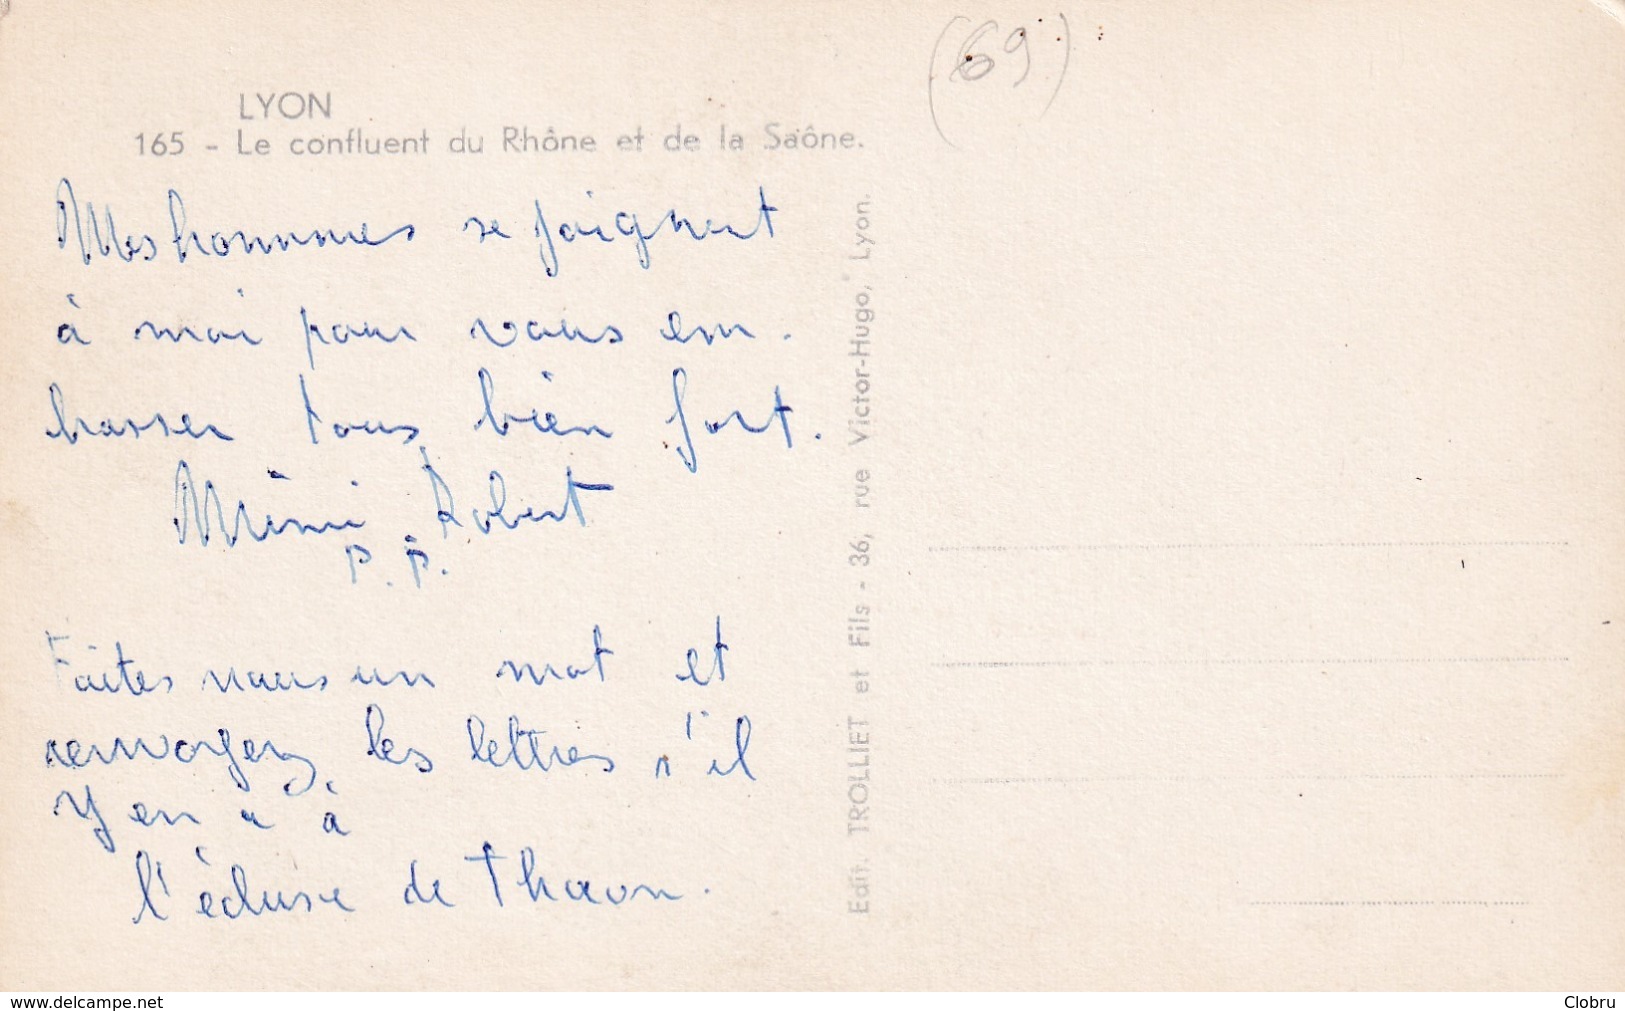 (69)
LYON
165 - Le confluent du Rhône et de la Saône.
Mes hommes se joignent
à moi pour vous em-
brasser tous bien fort.
Mimi Robert
P. P.
Faites nous un mot et
renvoyez les lettres s'il
y en a à
l'écluse de Thaon.
Edit. TROLLIET et Fils - 36, rue Victor-Hugo, Lyon.
www.delcampe.net
Clobru